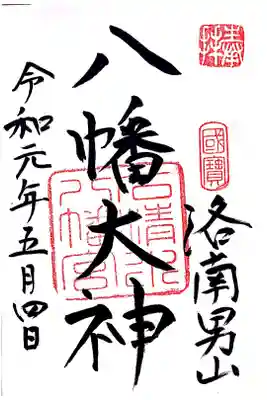 奉拝
國寶
洛南男山
八幡大神
石清水八幡宮
令和元年五月四日